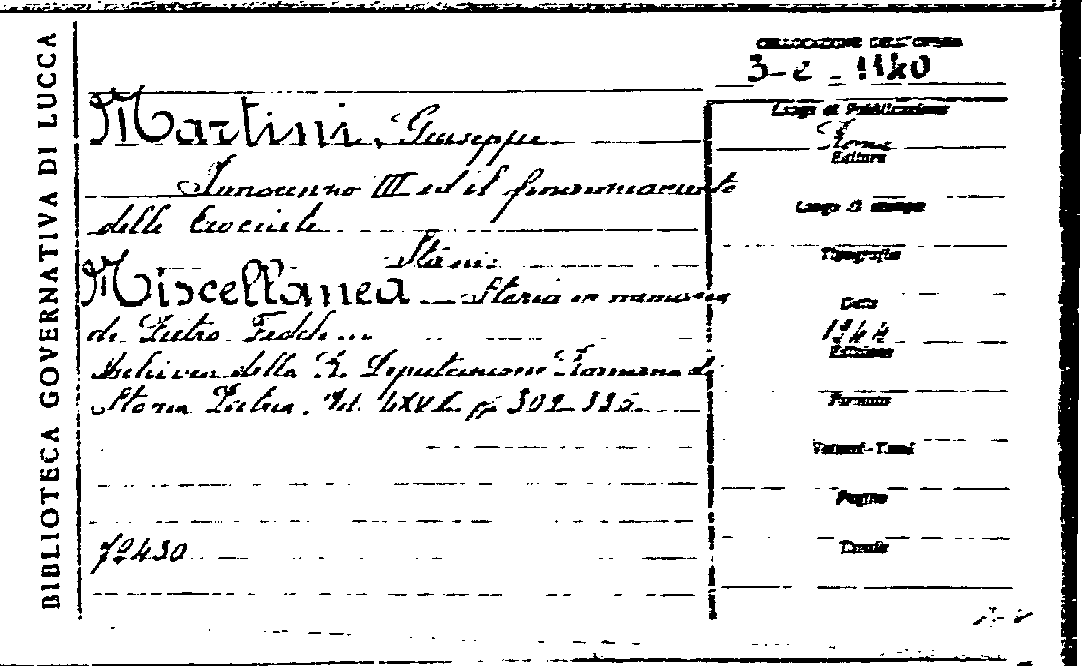 BIBLIOTECA GOVERNATIVA DI LUCCA
COLLOCAZIONE DELL'OPERA
3-e - 1140
Martini, Giuseppe
Innocenzo III ed il finanziamento
delle Crociate
Stà in:
Miscellanea - Storia in memoria
di Pietro Fedele...
Archivio della R. Deputazione Romana di
Storia Patria. Vol. LXVII pp 309-335
72430
Luogo di Pubblicazione
Roma
Editore
Luogo di stampa
Tipografia
Data
1944
Edizione
Formato
Volumi - Tomi
Pagine
Tavole